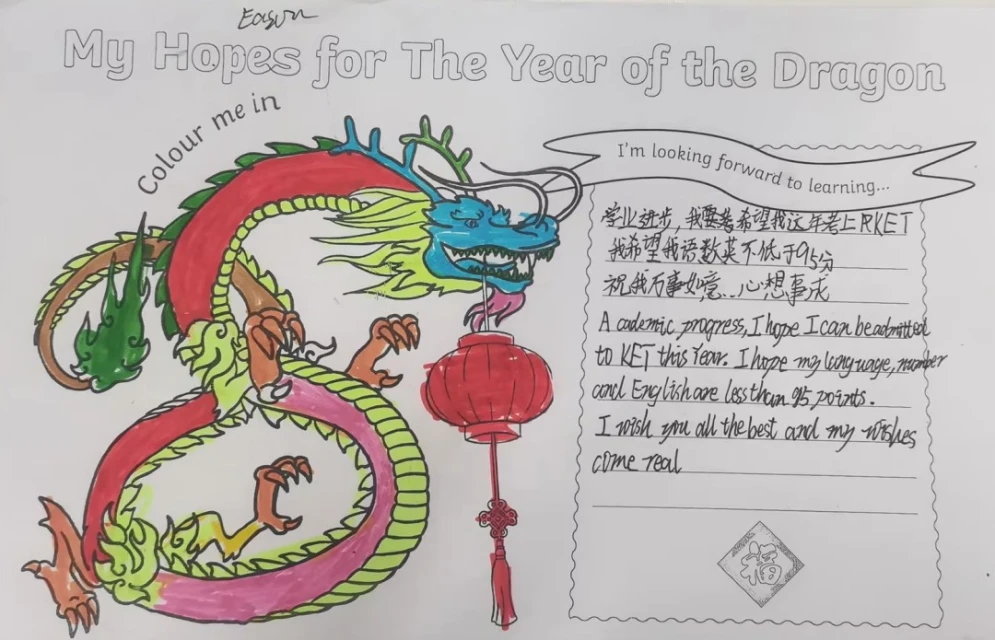 Eason
My Hopes for The Year of the Dragon
Colour me in
I'm looking forward to learning...
学业进步，我要考希望我这年考上RKET
我希望我语数英不低于95分
祝我万事如意...心想事成
Academic progress, I hope I can be admitted
to KET this Year. I hope my language, number
and English are less than 95 points.
I wish you all the best and my wishes
come real
福